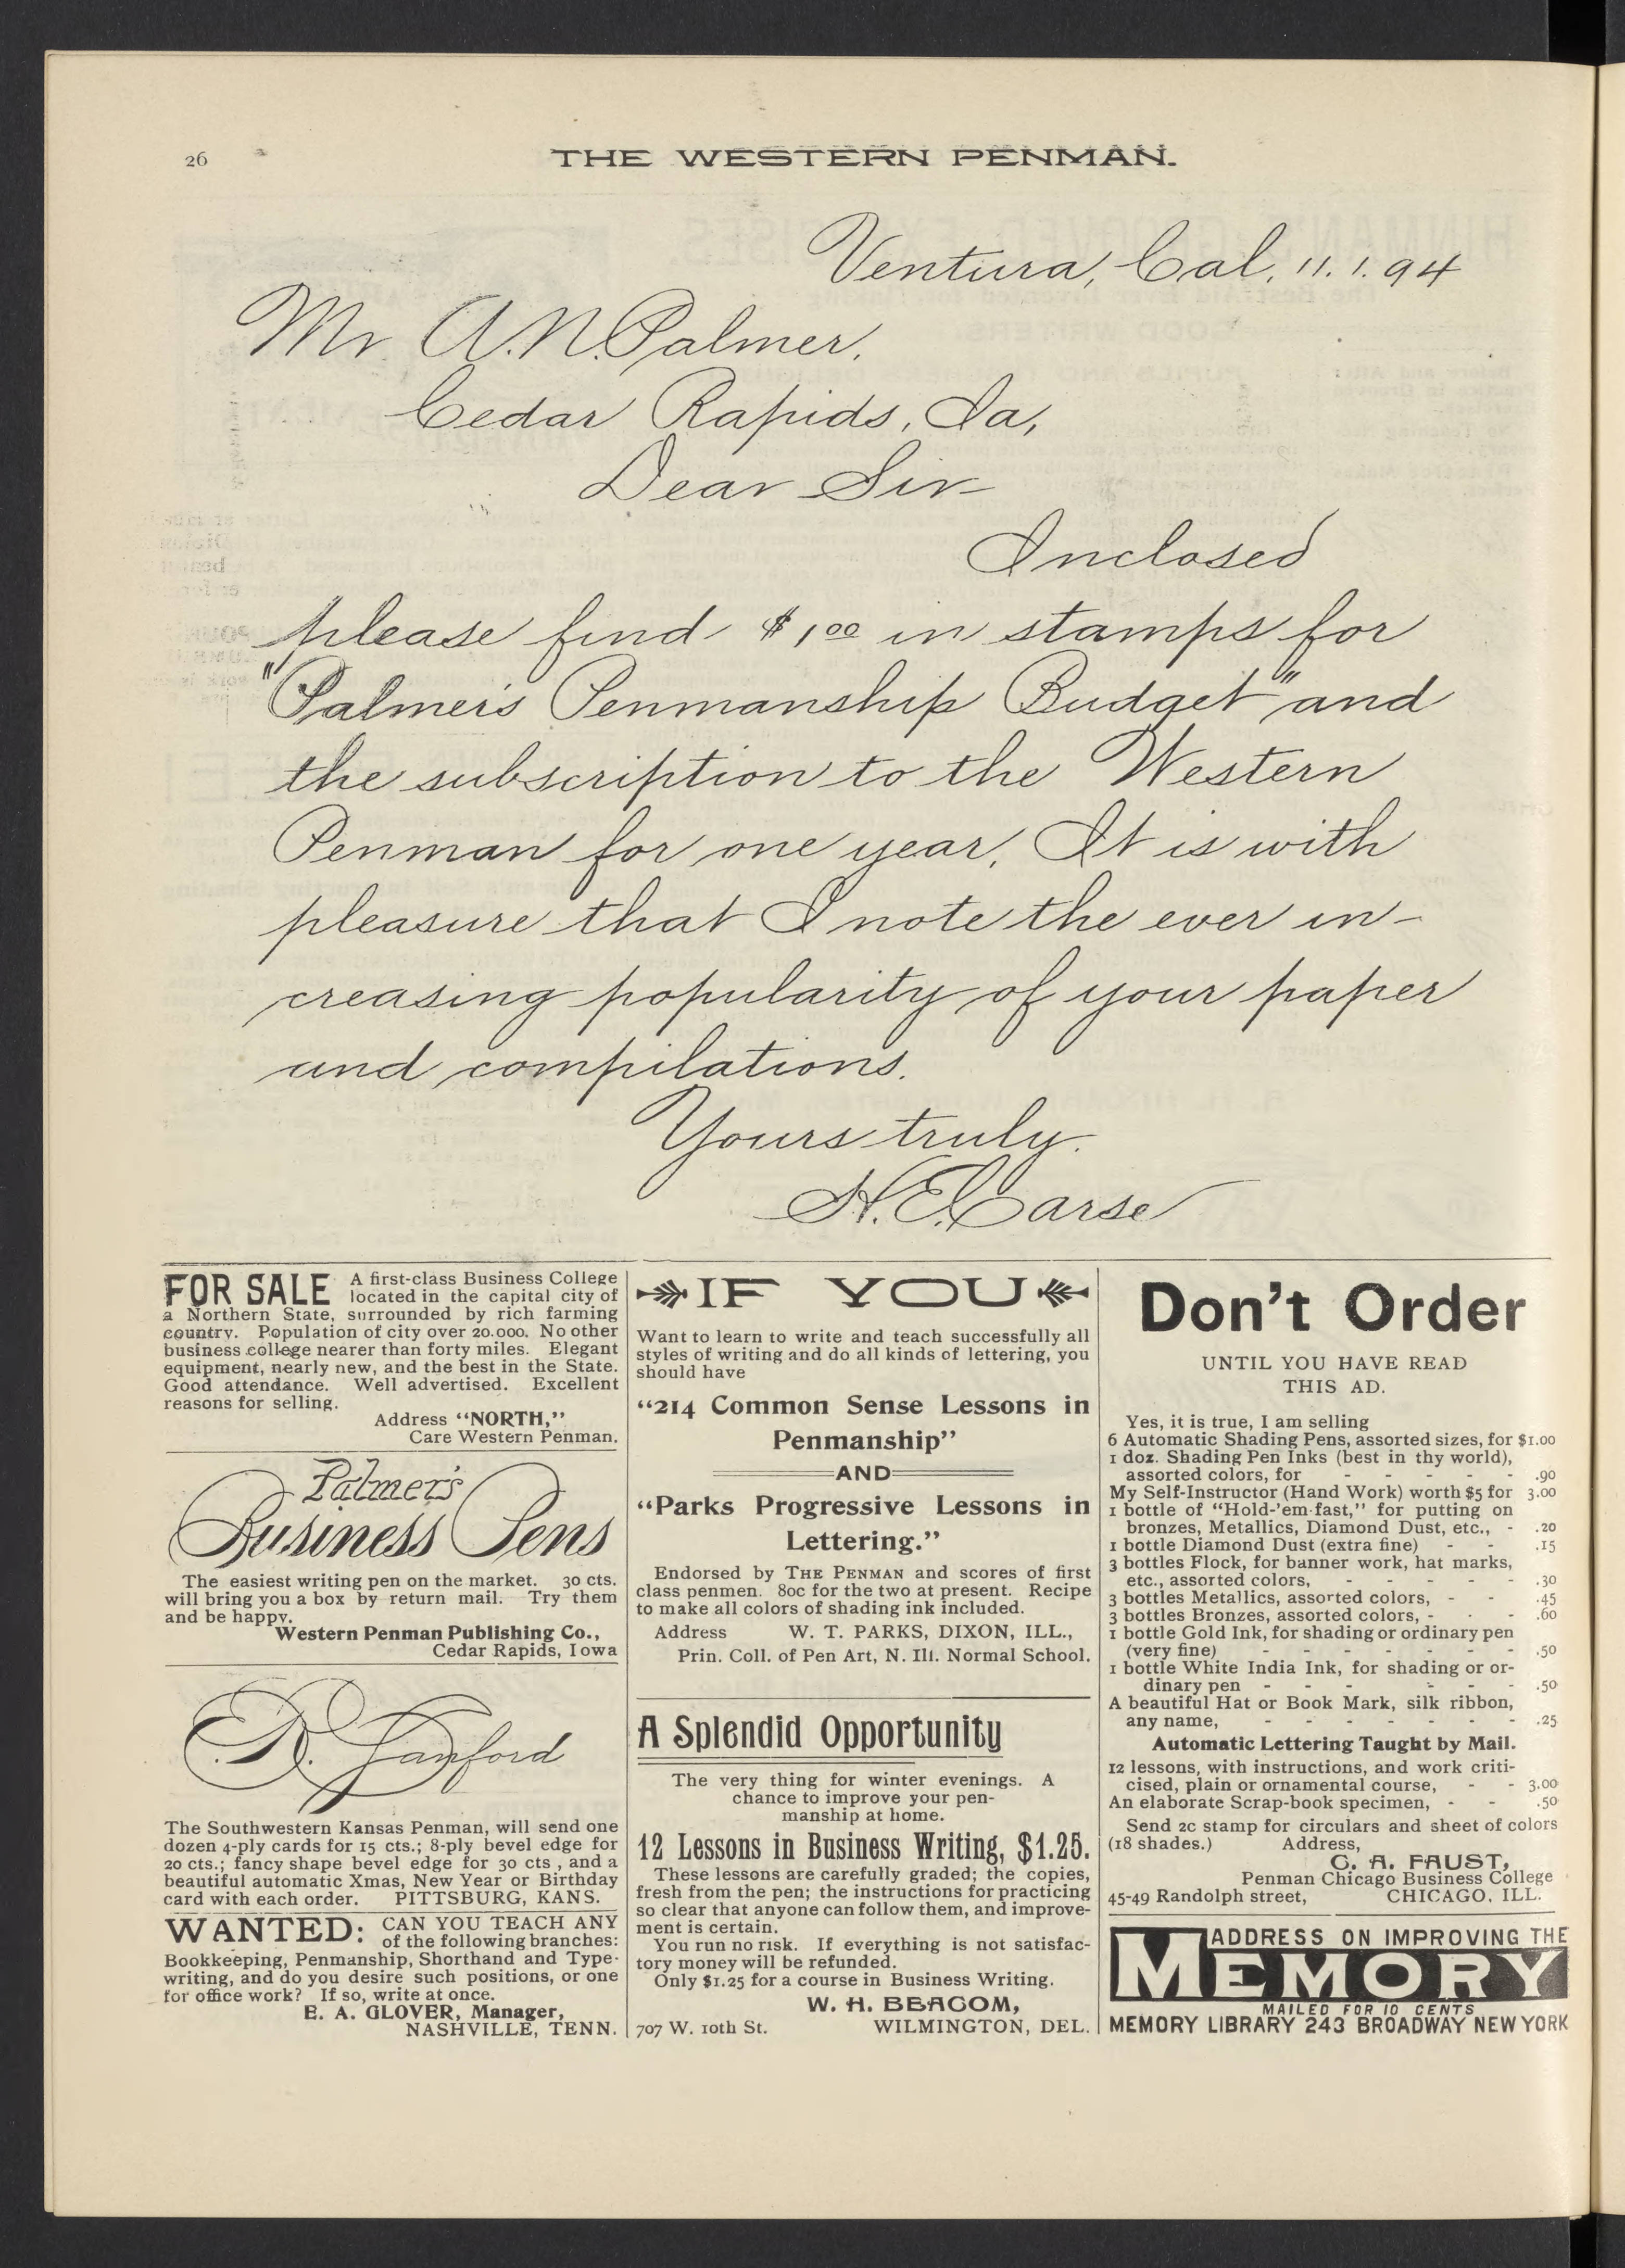 26
THE WESTERN PENMAN.
Ventura, Cal. 11. 1. 94
Mr. A. N. Palmer,
Cedar Rapids, Ia,
Dear Sir
Inclosed
please find $1.00 in stamps for
"Palmer's Penmanship Budget" and
the subscription to the Western
Penman for one year. It is with
pleasure that I note the ever in-
creasing popularity of your paper
and compilations.
Yours truly.
H. E. Carse
FOR SALE A first-class Business College
located in the capital city of
a Northern State, surrounded by rich farming
country. Population of city over 20.000. No other
business college nearer than forty miles. Elegant
equipment, nearly new, and the best in the State.
Good attendance. Well advertised. Excellent
reasons for selling.
Address "NORTH,"
Care Western Penman.
Palmer's
Business Pens
The easiest writing pen on the market. 30 cts.
will bring you a box by return mail. Try them
and be happy.
Western Penman Publishing Co.,
Cedar Rapids, Iowa
E. R. Sanford
The Southwestern Kansas Penman, will send one
dozen 4-ply cards for 15 cts.; 8-ply bevel edge for
20 cts.; fancy shape bevel edge for 30 cts , and a
beautiful automatic Xmas, New Year or Birthday
card with each order. PITTSBURG, KANS.
WANTED: CAN YOU TEACH ANY
of the following branches:
Bookkeeping, Penmanship, Shorthand and Type-
writing, and do you desire such positions, or one
for office work? If so, write at once.
E. A. GLOVER, Manager,
NASHVILLE, TENN.
IF YOU
Want to learn to write and teach successfully all
styles of writing and do all kinds of lettering, you
should have
"214 Common Sense Lessons in
Penmanship"
AND
"Parks Progressive Lessons in
Lettering."
Endorsed by THE PENMAN and scores of first
class penmen. 80c for the two at present. Recipe
to make all colors of shading ink included.
Address W. T. PARKS, DIXON, ILL.,
Prin. Coll. of Pen Art, N. Ill. Normal School.
A Splendid Opportunity
The very thing for winter evenings. A
chance to improve your pen-
manship at home.
12 Lessons in Business Writing, $1.25.
These lessons are carefully graded; the copies,
fresh from the pen; the instructions for practicing
so clear that anyone can follow them, and improve-
ment is certain.
You run no risk. If everything is not satisfac-
tory money will be refunded.
Only $1.25 for a course in Business Writing.
W. H. BEACOM,
707 W. 10th St. WILMINGTON, DEL.
Don't Order
UNTIL YOU HAVE READ
THIS AD.
Yes, it is true, I am selling
6 Automatic Shading Pens, assorted sizes, for $1.00
1 doz. Shading Pen Inks (best in thy world),
assorted colors, for - - - - - .90
My Self-Instructor (Hand Work) worth $5 for 3.00
1 bottle of "Hold-'em-fast," for putting on
bronzes, Metallics, Diamond Dust, etc., - .20
1 bottle Diamond Dust (extra fine) - - .15
3 bottles Flock, for banner work, hat marks,
etc., assorted colors, - - - - - .30
3 bottles Metallics, assorted colors, - - .45
3 bottles Bronzes, assorted colors, - - - .60
1 bottle Gold Ink, for shading or ordinary pen
(very fine) - - - - - - - .50
1 bottle White India Ink, for shading or or-
dinary pen - - - - - - .50
A beautiful Hat or Book Mark, silk ribbon,
any name, - - - - - - - .25
Automatic Lettering Taught by Mail.
12 lessons, with instructions, and work criti-
cised, plain or ornamental course, - - 3.00
An elaborate Scrap-book specimen, - - .50
Send 2c stamp for circulars and sheet of colors
(18 shades.) Address,
C. A. FAUST,
Penman Chicago Business College
45-49 Randolph street, CHICAGO, ILL.
ADDRESS ON IMPROVING THE
MEMORY
MAILED FOR 10 CENTS
MEMORY LIBRARY 243 BROADWAY NEW YORK